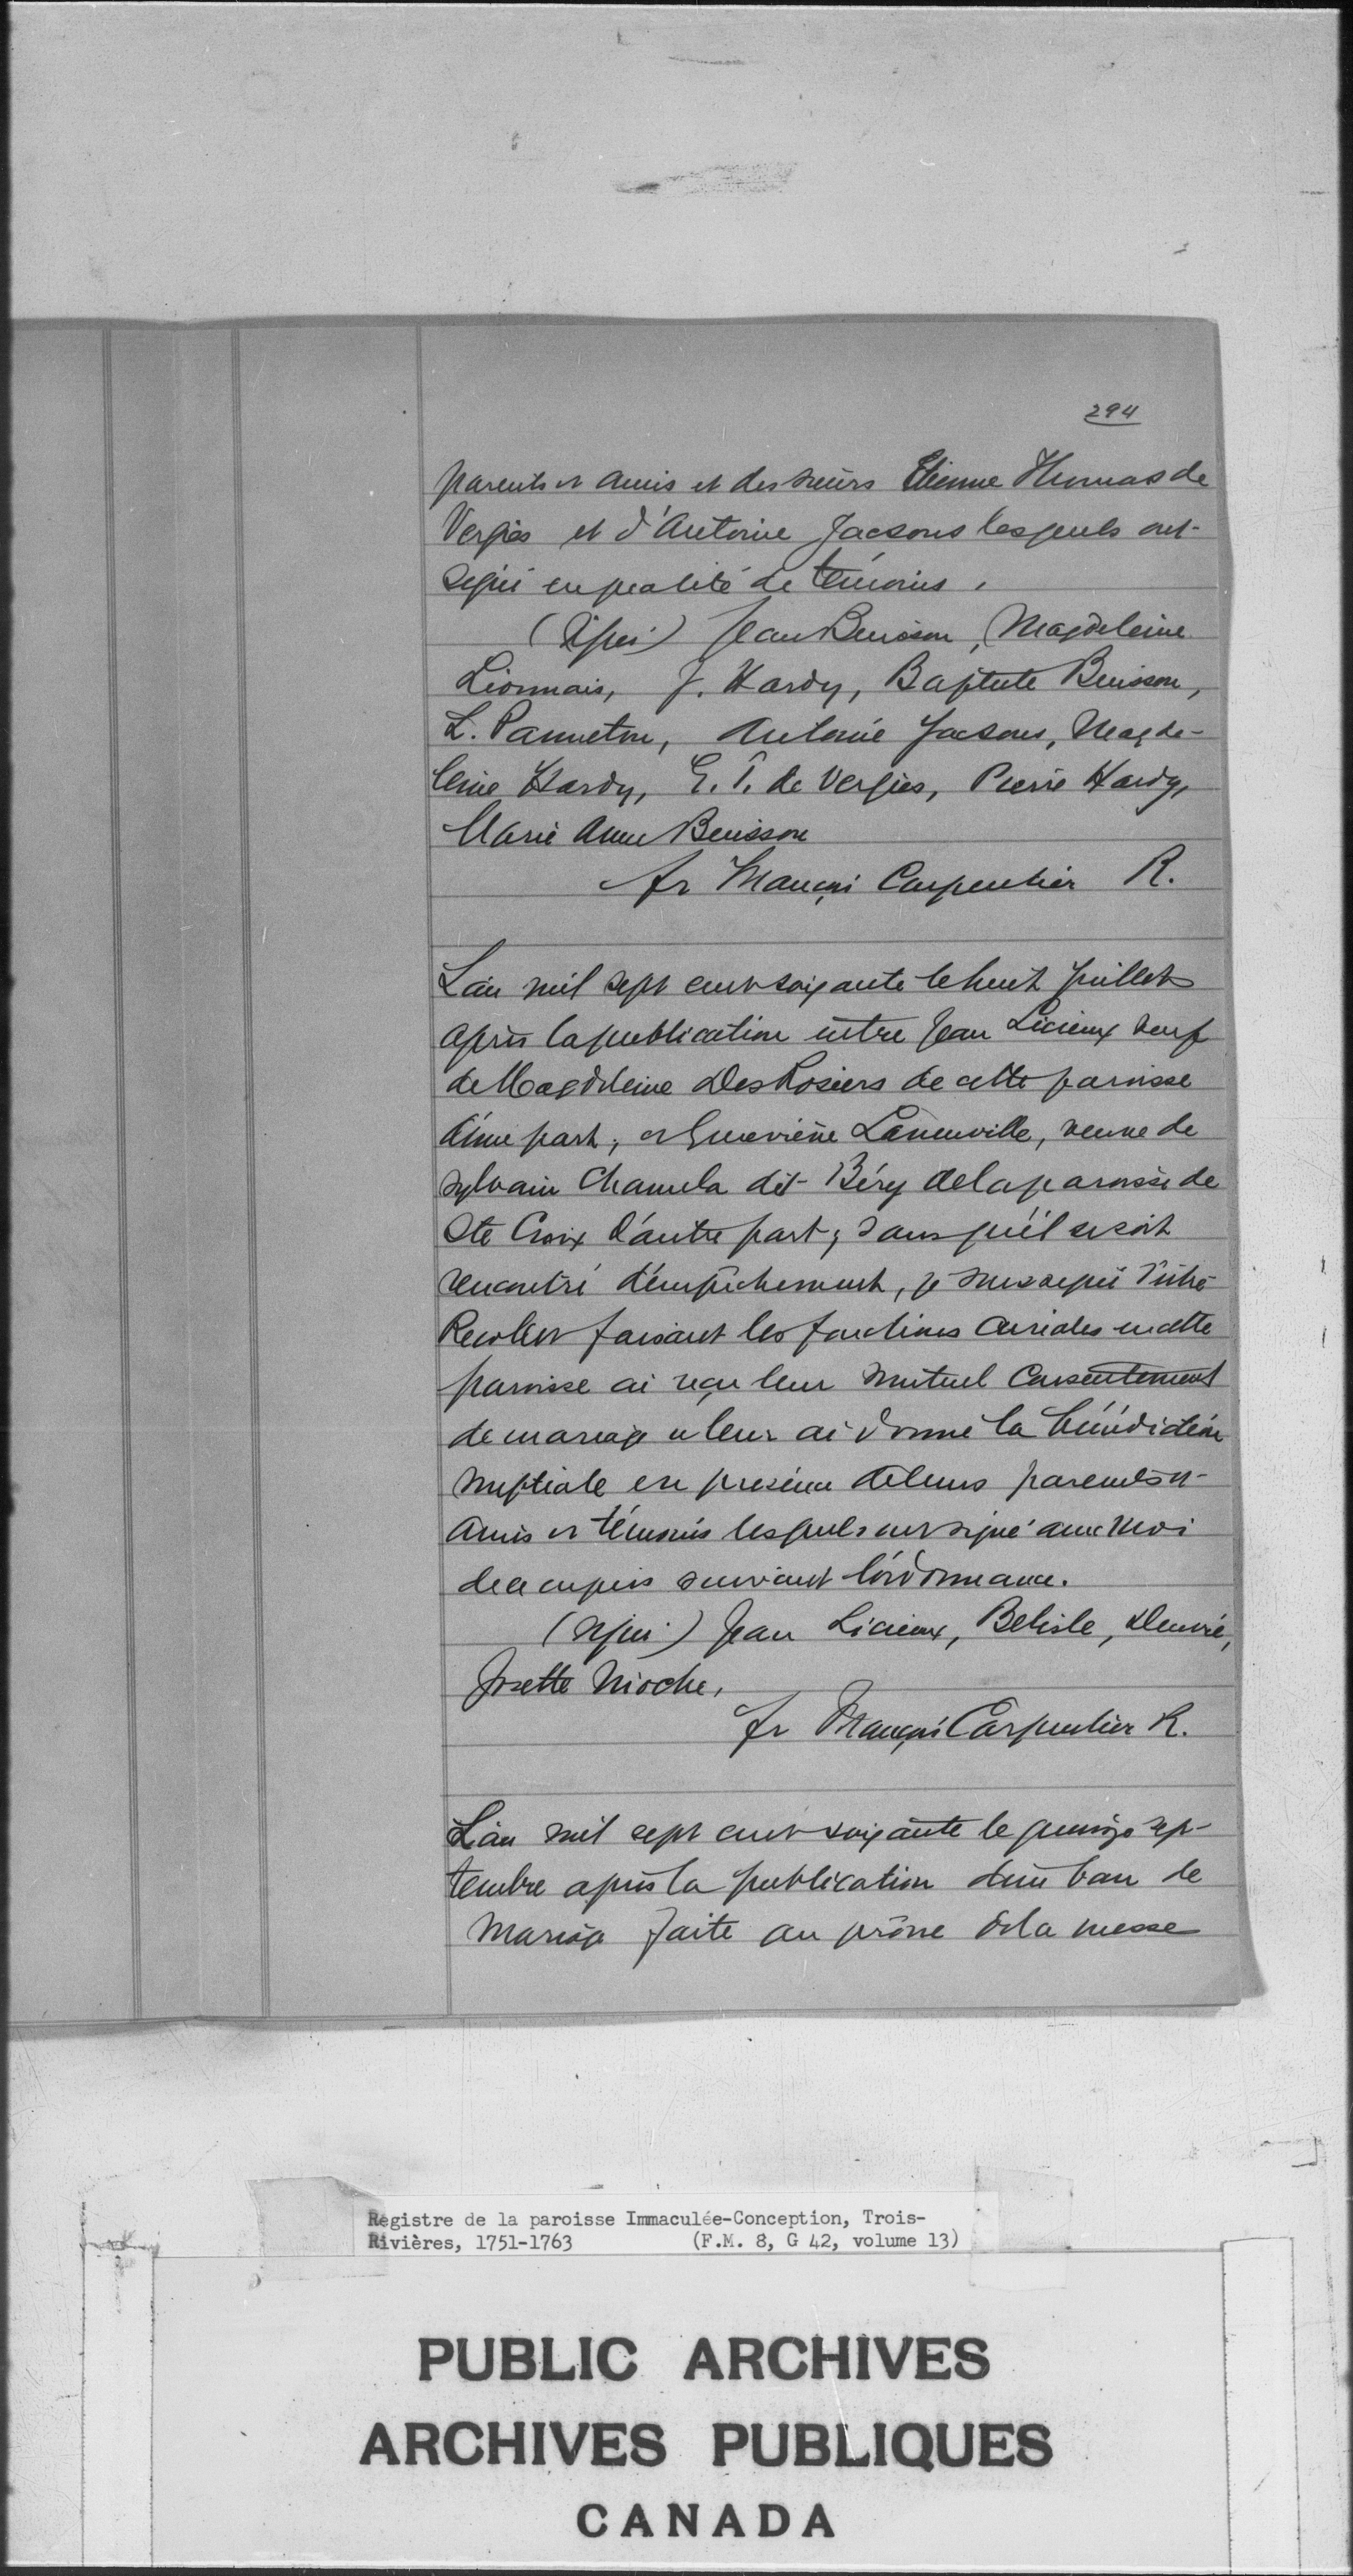 294
parents et amis et des sieurs Etienne Thomas de
Vergies et d'Antoine Jacsons lesquels ont
signé en qualité de témoins.
(Signé) Jean Buisson, Magdeleine
Lionnais, J. Hardy, Baptiste Buisson,
L. Panneton, Antoine Jacsons, Magde-
leine Hardy, E. T. de Vergies, Pierre Hardy,
Marie Anne Buisson
fr François Carpentier R.
L'an mil sept cent soixante le huit juillet
après la publication entre Jean Licieux veuf
de Magdeleine DesRosiers de cette paroisse
d'une part, et Geneviève Laneuville, veuve de
Sylvain Chamela dit Béry de la paroisse de
Ste Croix d'autre part; sans qu'il se soit
rencontré d'empêchement, je soussigné Ptre
Recollet faisant les fonctions curiales en cette
paroisse ai reçu leur mutuel consentement
de mariage et leur ai donné la bénédiction
nuptiale en présence de leurs parents et
amis et témoins lesquels ont signé avec moi
de ce enquis suivant l'ordonnance.
(signé) Jean Licieux, Belisle,
Josette Nioche,
fr François Carpentier R.
L'an mil sept cent soixante le quinze sep-
tembre après la publication d'un ban de
mariage faite au prône de la messe
Registre de la paroisse Immaculée-Conception, Trois-
Rivières, 1751-1763 (F.M. 8, G 42, volume 13)
PUBLIC ARCHIVES
ARCHIVES PUBLIQUES
CANADA